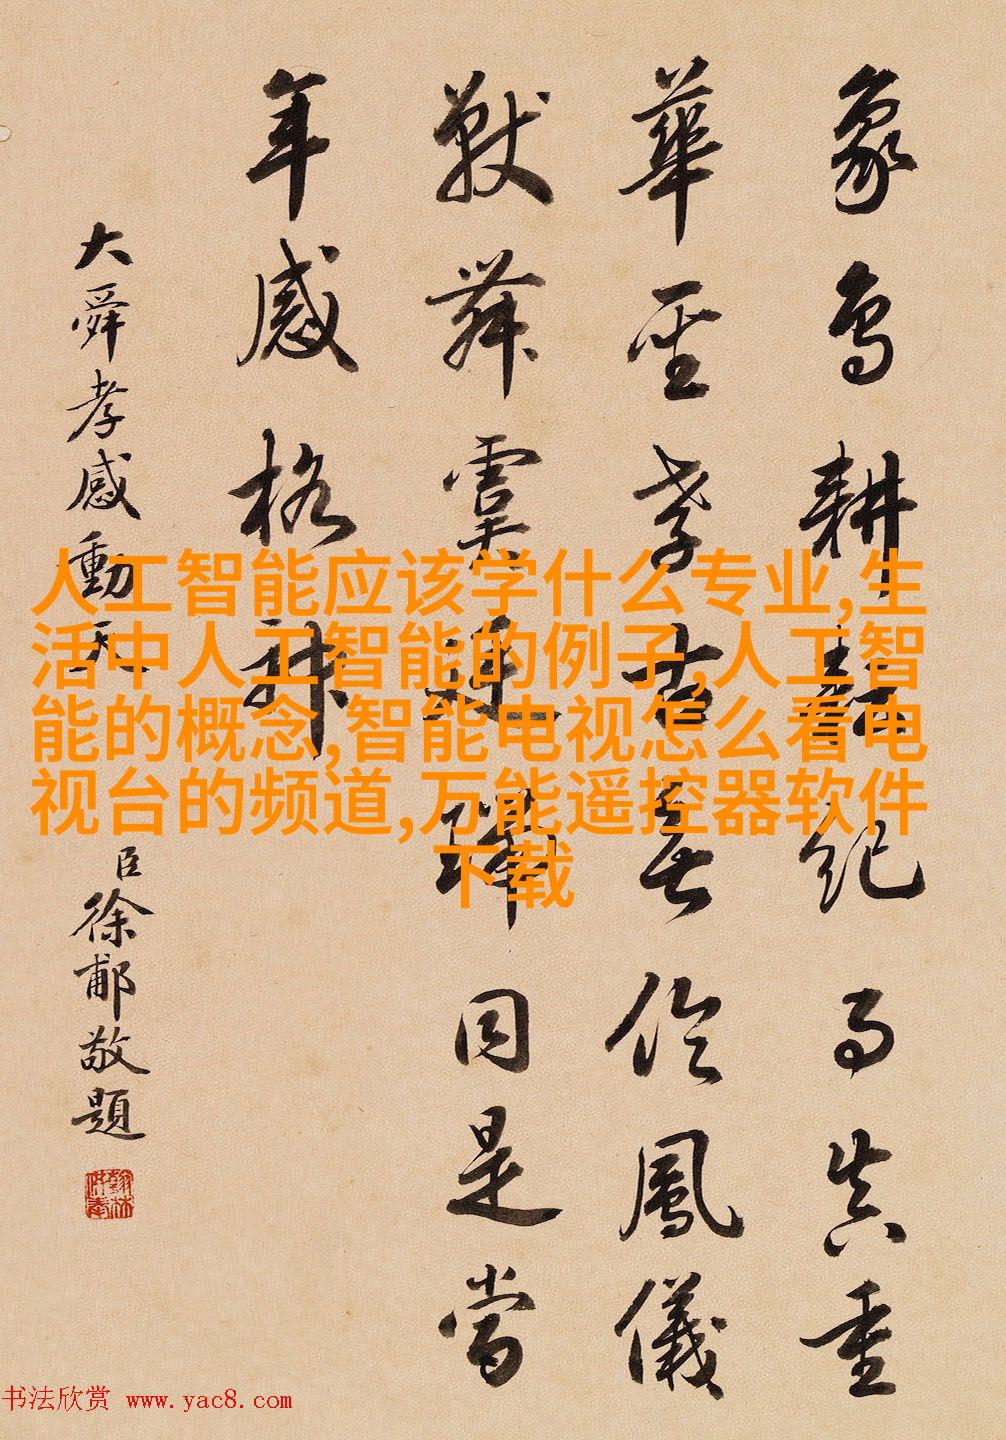 象鳥耕紀事真重
華孝古無倫鳳儀
獸舞虞廷瑞同是當
年感格神
大舜孝感動天
臣徐郙敬題
人工智能应该学什么专业,生
活中人工智能的例子,人工智
能的概念,智能电视怎么看电
视台的频道,万能遥控器软件
下载
书法欣赏 www.yac8.com